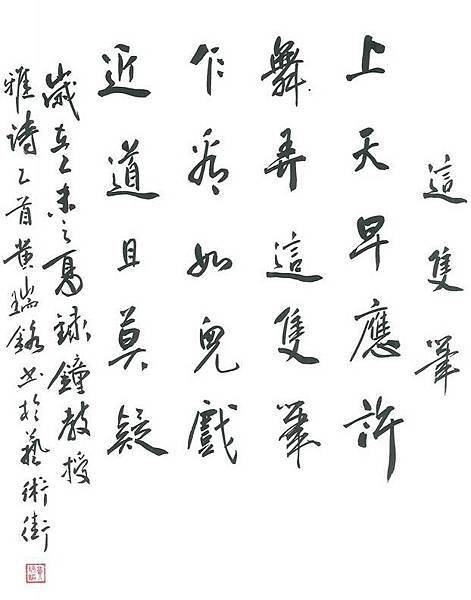 這隻筆
上天早應許
舞弄這隻筆
乍看如兒戲
近道且莫疑
歲在乙未之夏錄鐘教授
雅詩乙首黃瑞銘書於藝術街